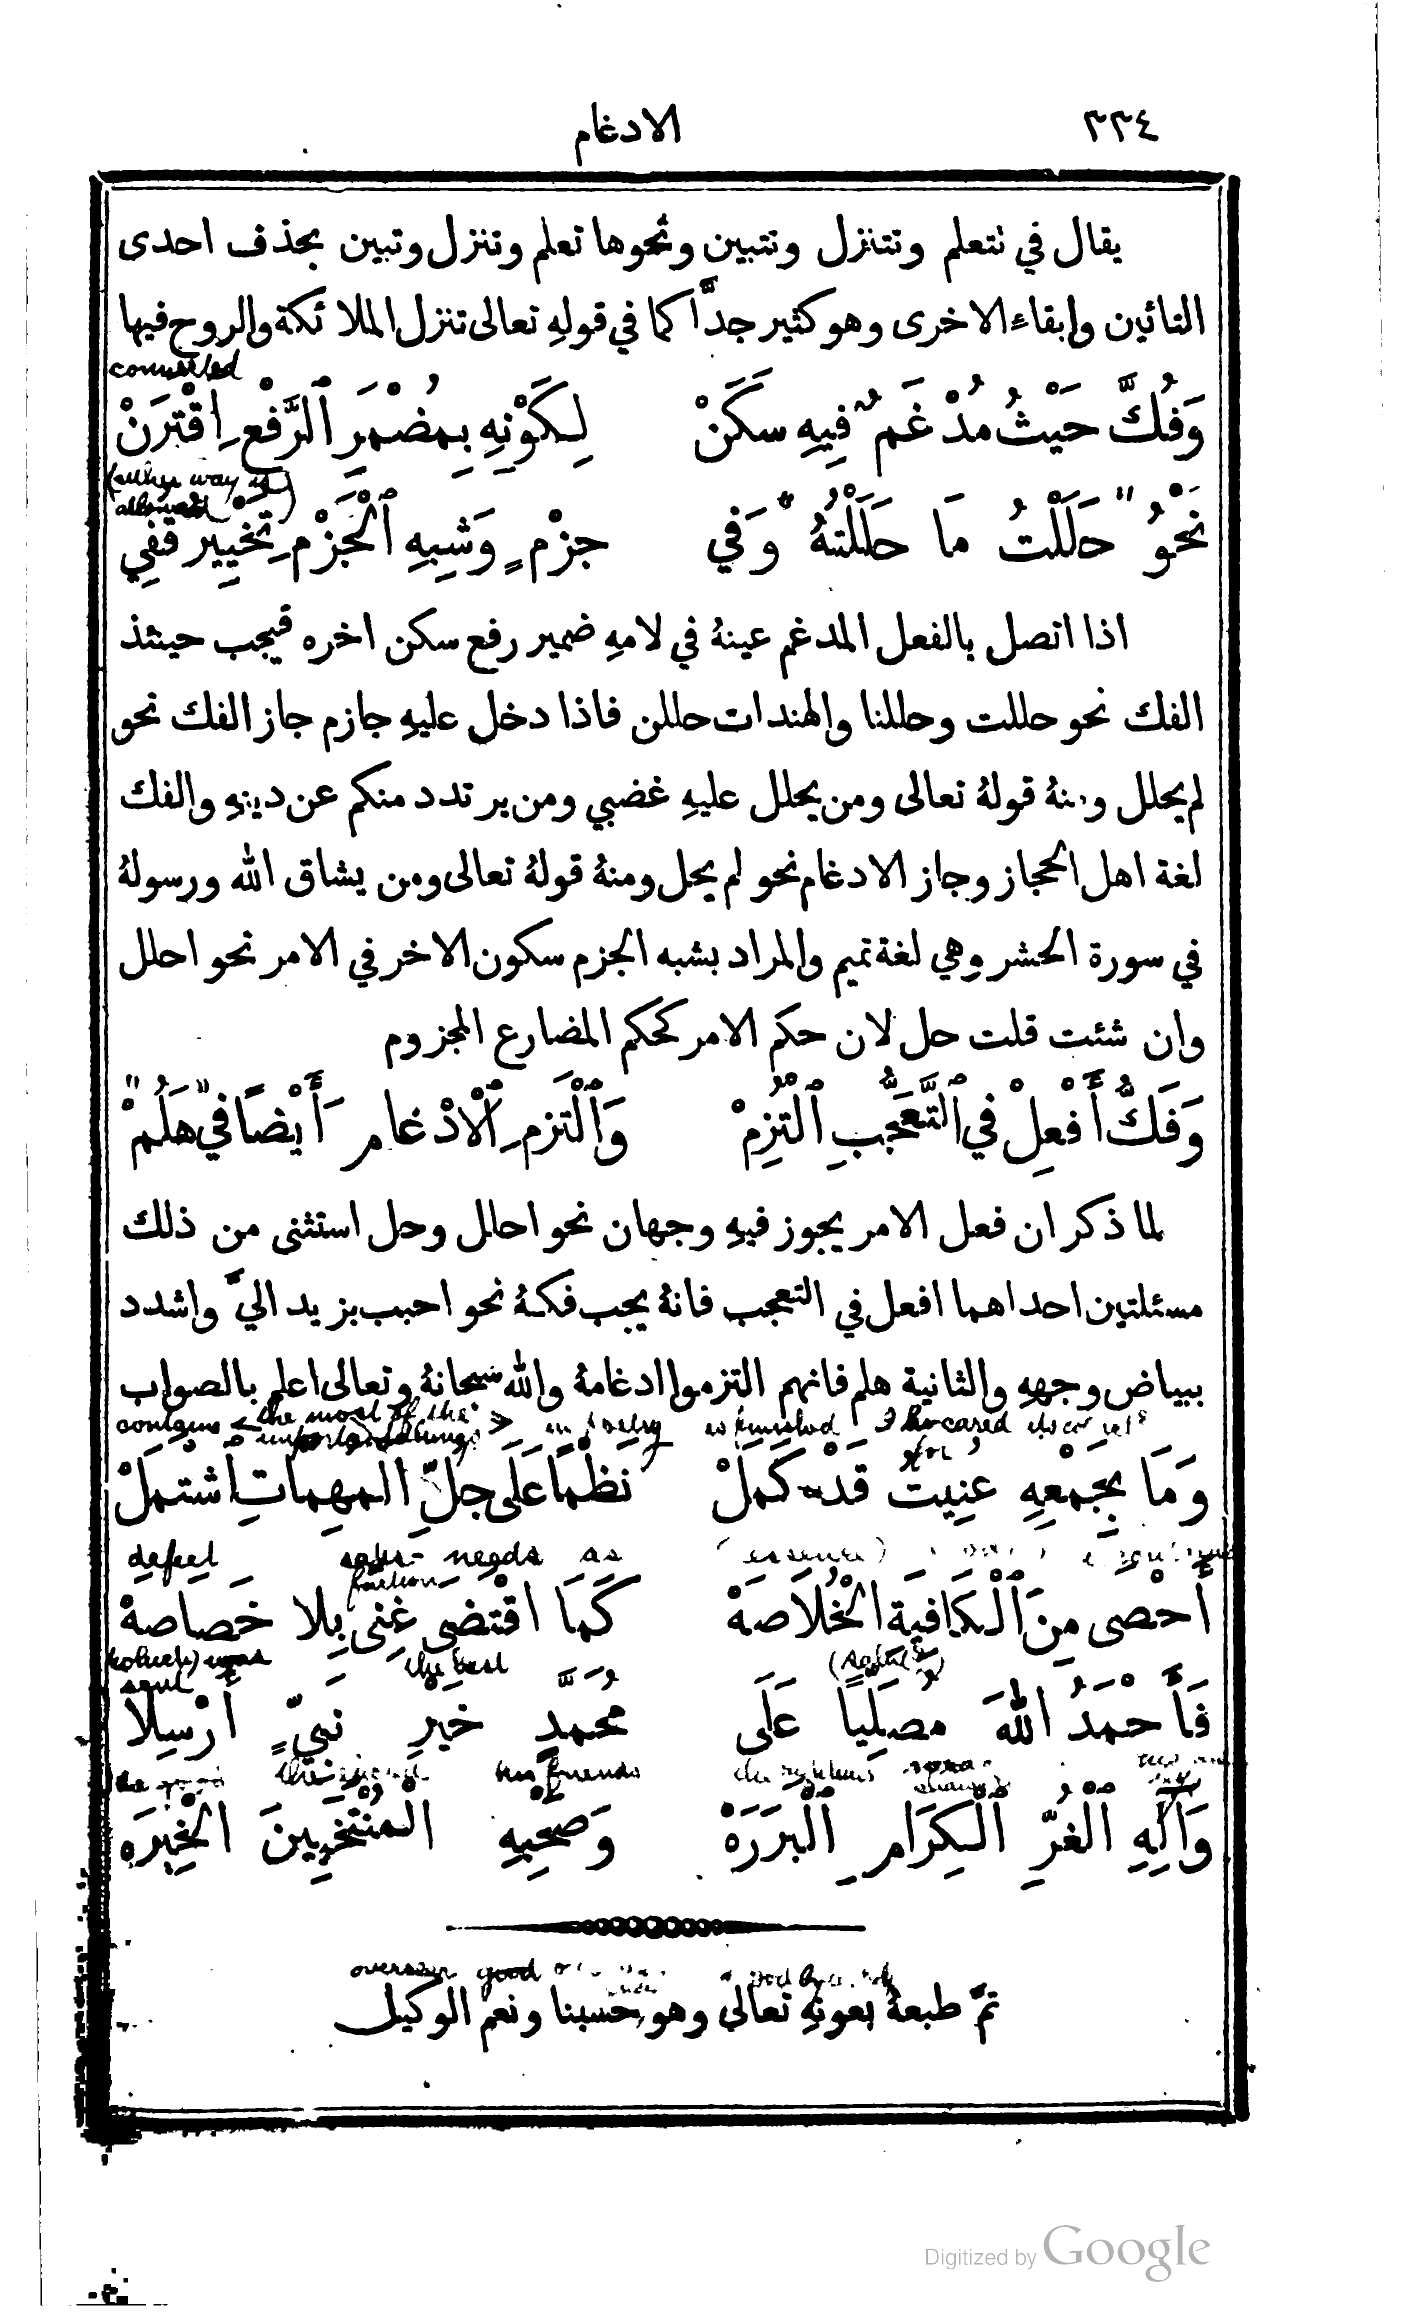 ٣٣٤ الادغام
يقال في نتعلم وتتنزل وتتبين ونحوها تعلم وتنزل وتبين بحذف احدى
التائين وإبقاء الاخرى وهو كثير جدًّا كما في قولهِ تعالى تنزل الملائكة والروح فيها
converted
وَفُكَّ حَيْثُ مُدْغَمٌ فِيهِ سَكَنْ لِكَوْنِهِ بِمُضْمَرِ ٱلرَّفْعِ ٱقْتَرَنْ
(either way is allowed)
نَحْوُ " حَلَلْتُ مَا حَلَلْتَهُ " وَفِي جَزْمٍ وَشِبْهِ ٱلْجَزْمِ تَخْيِيرٌ قُفِي
اذا اتصل بالفعل المدغم عينهُ في لامهِ ضمير رفع سكن اخره فيجب حينئذ
الفك نحو حللت وحللنا والهندات حللن فاذا دخل عليهِ جازم جاز الفك نحو
لم يحلل ومنهُ قولهُ تعالى ومن يحلل عليهِ غضبي ومن يرتدد منكم عن دينهِ والفك
لغة اهل الحجاز وجاز الادغام نحو لم يحل ومنهُ قولهُ تعالى ومن يشاق الله ورسولهُ
في سورة الحشر وهي لغة تميم والمراد بشبه الجزم سكون الاخر في الامر نحو احلل
وان شئت قلت حل لان حكم الامر كحكم المضارع المجزوم
وَفَكُّ أَفْعِلْ فِي ٱلتَّعَجُّبِ ٱلْتُزِمْ وَٱلْتُزِمَ ٱلْإِدْغَامُ أَيْضًا فِي " هَلُمْ "
لما ذكر ان فعل الامر يجوز فيهِ وجهان نحو احلل وحل استثنى من ذلك
مسئلتين احداهما افعل في التعجب فانهُ يجب فكهُ نحو احبب بزيد اليَّ واشدد
ببياض وجههِ والثانية هلم فانهم التزموا ادغامهُ والله سبحانهُ وتعالى اعلم بالصواب
contains the most of the important things in poetry is finished I have cared for
وَمَا بِجَمْعِهِ عُنِيتُ قَدْ كَمَلْ نَظْمًا عَلَى جُلِّ المُهِمَّاتِ ٱشْتَمَلْ
defect satisfaction needs as (essence)
أَحْصَى مِنَ ٱلْكَافِيَةِ الْخُلَاصَهْ كَمَا اقْتَضَى غِنًى بِلَا خَصَاصَهْ
(which) was sent the best
فَأَحْمَدُ اللهَ مُصَلِّيًا عَلَى مُحَمَّدٍ خَيْرِ نَبِيٍّ أُرْسِلَا
the good the his friends the righteous
وَآلِهِ ٱلْغُرِّ ٱلْكِرَامِ ٱلْبَرَرَهْ وَصَحْبِهِ الْمُنْتَخَبِينَ الْخِيَرَهْ
overseer good
تمَّ طبعهُ بعونهِ تعالى وهو حسبنا ونعم الوكيل
Digitized by Google